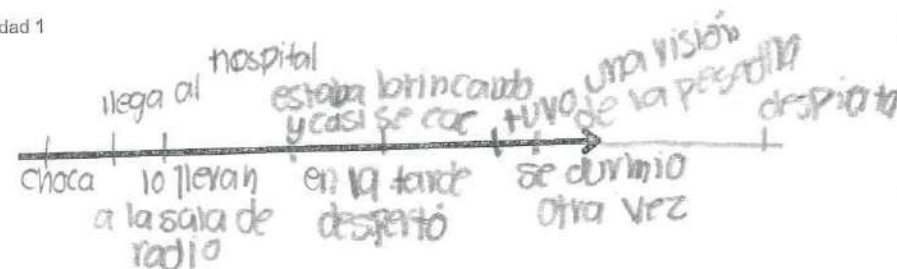 dad 1
llega al hospital
estaba brincando
y casi se cae
tuvo una visión
de la pesadilla
despierta
choca
lo llevan
a la sala de
radio
en la tarde
despertó
se durmio
otra vez